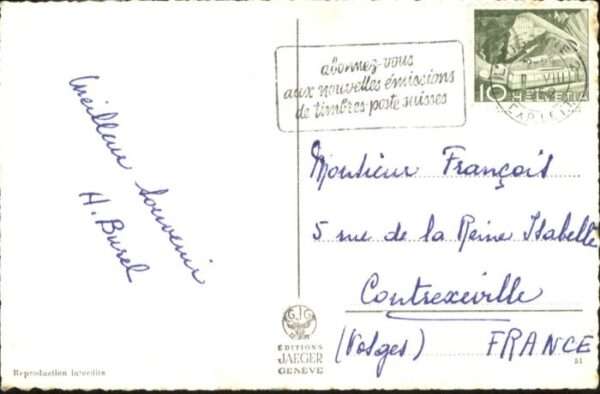 abonnez-vous
aux nouvelles émissions
de timbres-poste suisses
10
HELVETIA
VIII
Meilleur Souvenir
H. Burel
Monsieur François
5 rue de la Reine Isabelle
Contrexeville
(Vosges) FRANCE
G.J.G
EDITIONS
JAEGER
GENÈVE
Reproduction interdite
51